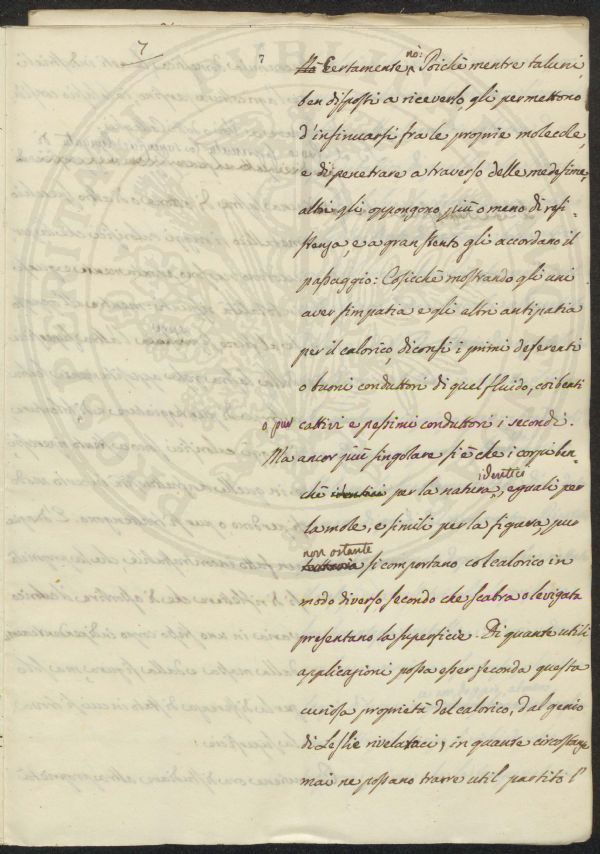 7
7
Certamente no: Poichè mentre taluni
ben disposti a riceverlo gli permettono
d'insinuarsi fra le proprie molecole,
e di penetrare a traverso delle medesime,
altri gli oppongono più o meno di resi-
stenza, e a gran stento gli accordano il
passaggio: Cosicchè mostrando gli uni
aver simpatia e gli altri antipatia
per il calorico diconsi i primi deferenti
o buoni conduttori di quel fluido, coibenti
o pur cattivi e pessimi conduttori i secondi.
Ma ancor più singolare si è che i corpi ben-
chè identici per la natura, identici eguali per
la mole, e simili per la figura, pur
non ostante si comportano col calorico in
modo diverso secondo che scabra o levigata
presentano la superficie. Di quante utili
applicazioni possa esser feconda questa
curiosa proprietà del calorico, dal genio
di Leslie rivelataci, in quante circostanze
mai ne possano trarre util partito l'